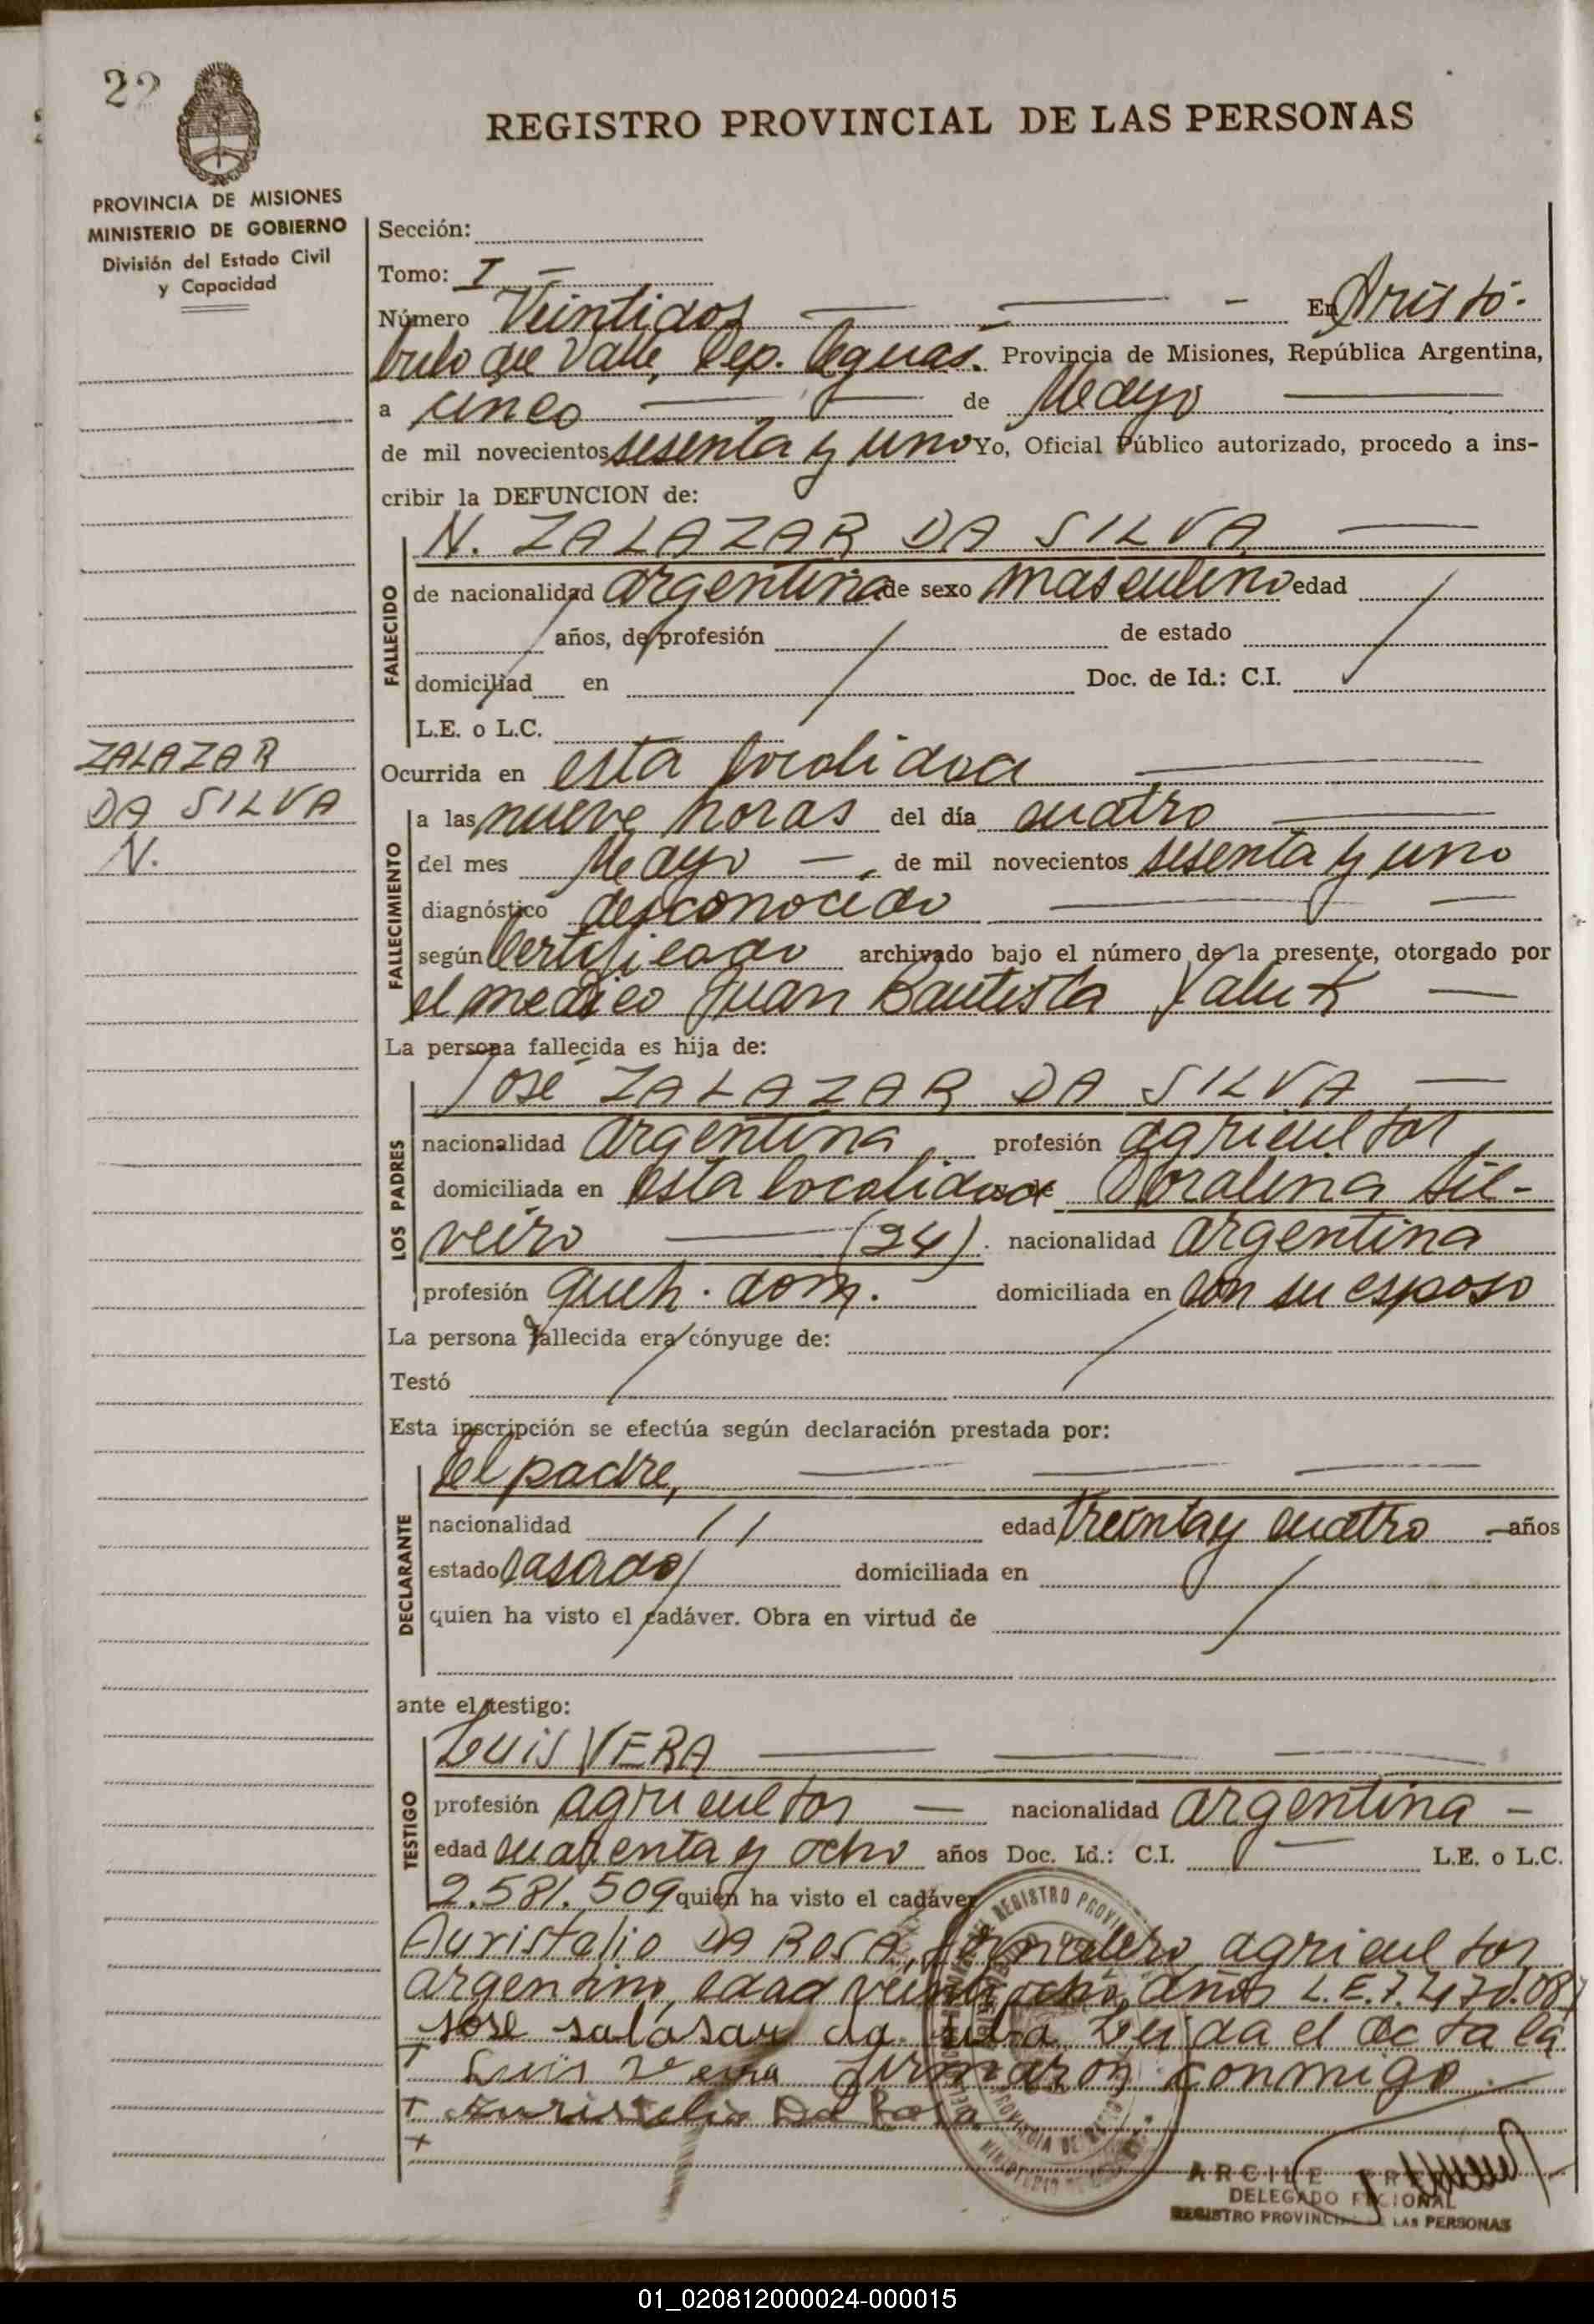 22
REGISTRO PROVINCIAL DE LAS PERSONAS
PROVINCIA DE MISIONES
MINISTERIO DE GOBIERNO
División del Estado Civil
y Capacidad
Sección:
Tomo: I —
Número Veintidos — — - En Aristó-
bulo del Valle, Dep. Cqguas. Provincia de Misiones, República Argentina,
a cinco — — de Mayo —
de mil novecientos sesenta y uno Yo, Oficial Público autorizado, procedo a ins-
cribir la DEFUNCION de:
N. ZALAZAR DA SILVA —
FALLECIDO
de nacionalidad argentina de sexo masculino edad /
/ años, de profesión / de estado /
domiciliad en Doc. de Id.: C.I.
L.E. o L.C.
ZALAZAR
DA SILVA
N.
Ocurrida en esta localidad —
FALLECIMIENTO
a las nueve horas del día cuatro —
del mes Mayo —, de mil novecientos sesenta y uno
diagnóstico desconocido — —
según Certificado archivado bajo el número de la presente, otorgado por
el medico Juan Bautista —
La persona fallecida es hija de:
LOS PADRES
José ZALAZAR DA SILVA —
nacionalidad argentina, profesión agricultor,
domiciliada en esta localidad Doralina Sil-
veiro — (24). nacionalidad argentina
profesión queh. dom. domiciliada en con su esposo
La persona fallecida era cónyuge de: /
Testó /
Esta inscripción se efectúa según declaración prestada por:
DECLARANTE
el padre, — — —
nacionalidad // edad treinta y cuatro - años
estado casado/ domiciliada en /
quien ha visto el cadáver. Obra en virtud de
ante el testigo:
TESTIGO
Luis VERA — — —
profesión agricultor — nacionalidad argentina -
edad cuarenta y ocho años Doc. Id.: C.I. — L.E. o L.C.
2.581.509 quien ha visto el cadáver
Auristelio DA ROSA, agricultor,
argentino, edad veintiocho, años L.E.7.470.08
Jose salasar da silva Leida el acta la
+ Luis Vera firmaron conmigo.
+ Auristelio Da Rosa
+
REGISTRO PROVIN
ARCILE
DELEGADO
REGISTRO PROVINCIAL LAS PERSONAS
01_020812000024-000015